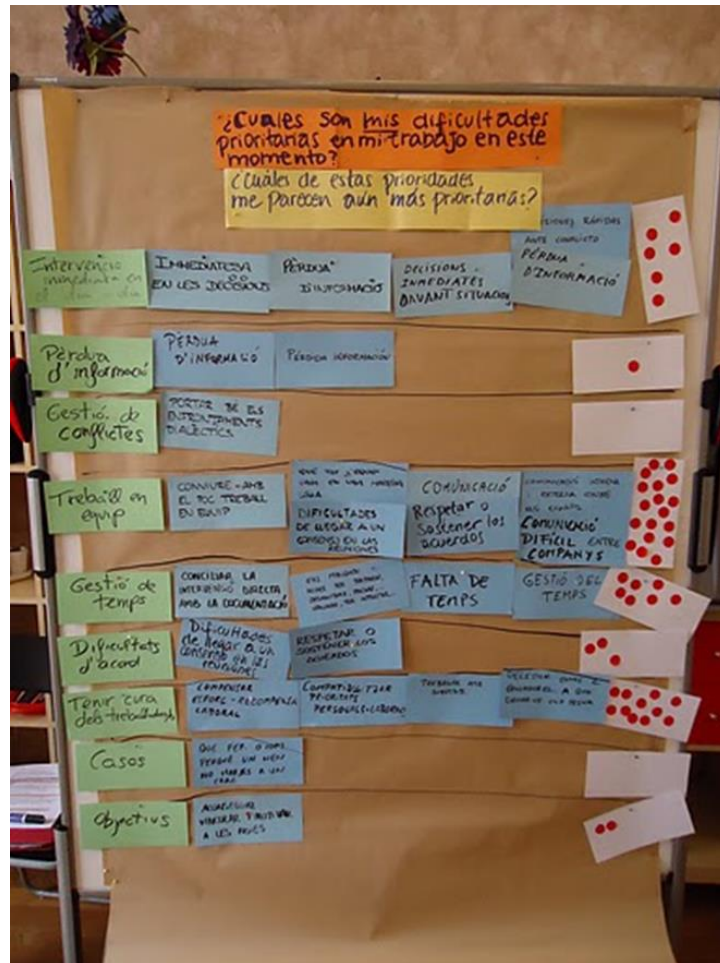 ¿Cuales son mis dificultades
prioritarias en mi trabajo en este
momento?
¿Cuáles de estas prioridades
me parecen aún más prioritarias?
Intervenció
immediata en
el dia
IMMEDIATESA
EN LES DECISIONS
PÈRDUA
D'INFORMACIÓ
DECISIONS
INMEDIATES
DAVANT SITUACIONS
RÁPIDAS
ANTE CONFLICTO
PÈRDUA
D'INFORMACIÓ
Pèrdua
d'informació
PÈRDUA
D'INFORMACIÓ
PÉRDIDA INFORMACIÓN
Gestió de
conflictes
PORTAR BE ELS
ENFRONTAMENTS
DIALÈCTICS
Treball en
equip
CONVIURE AMB
EL POC TREBALL
EN EQUIP
DIFICULTADES
DE LLEGAR A UN
CONSENSO EN LAS
REUNIONES
COMUNICACIÓ
Respetar o
Sostener los
acuerdos
COMUNICACIÓ
COMUNICACIÓ
DIFÍCIL ENTRE
COMPANYS
Gestió de
temps
CONCILIAR LA
INTERVENCIÓ DIRECTA
AMB LA DOCUMENTACIÓ
FALTA DE
TEMPS
GESTIÓ DEL
TEMPS
Dificultats
d'acord
Dificultades
de llegar a un
consenso en las
reuniones
RESPETAR O
SOSTENER LOS
ACUERDOS
Tenir cura
dels treballadors
COMPENSAR
ESFORÇ-RECOMPENSA
LABORAL
COMPATIBILITZAR
PRIORITATS
PERSONALS-LABORALS
TREBALLAR
Casos
QUE FER
PERQUÈ UN NEN
NO
Objectius
VINCULAR I MOTIVAR
A LES NOIES